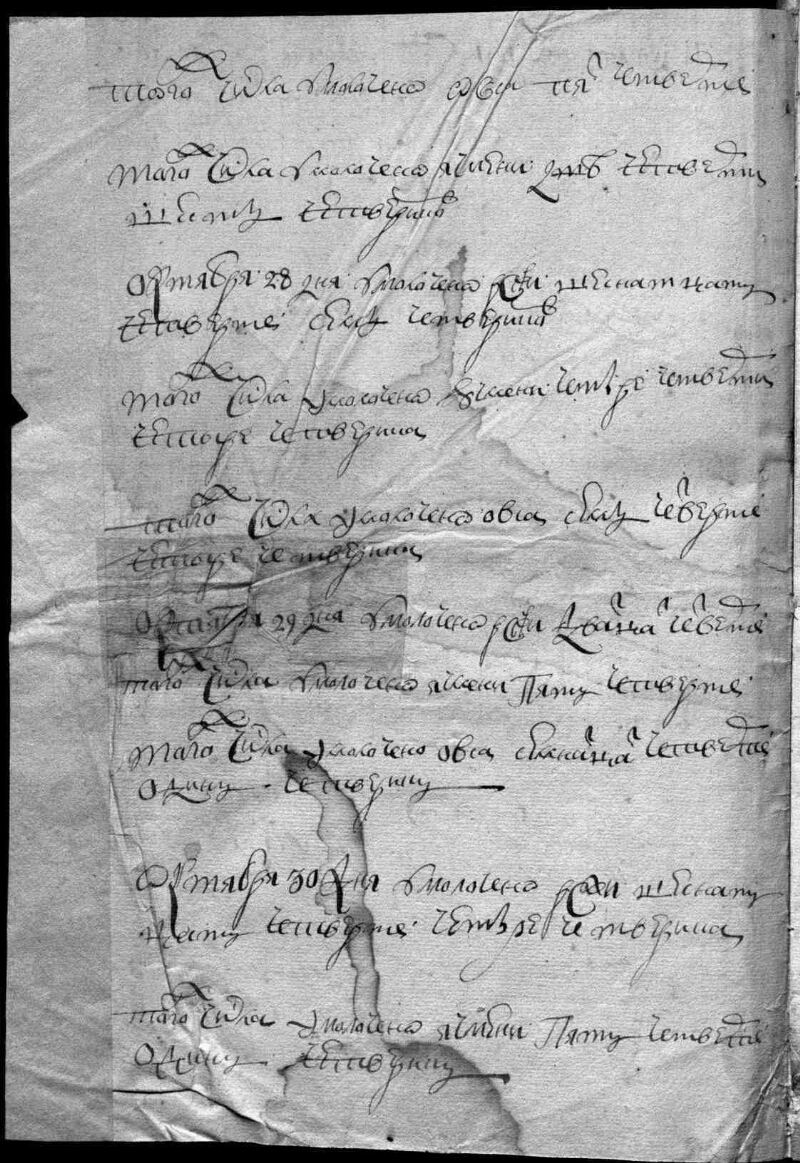 того числа умолочено овса пят четвертеи
того числа умолочено ячменя четвертеи
шесть четвериков
Октября 28 дня умолочено ржи шеснатцать
четвертеи семь четвериков
того числа умолочено ячменя четыре четверти
четыре четверика
того числа умолочено овса семь четвертеи
четыре четверика
Октября 29 дня умолочено ржи дватцат четвертеи
того числа умолочено ячменя пять четвертеи
того числа умолочено овса семнатцат четвертеи
один четверик
Октября 30 дня умолочено ржи шеснат
цать четвертеи четыре четверика
того числа умолочено ячменя пять четвертеи
один четверик